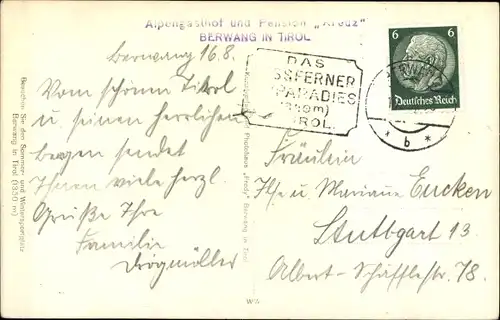 Alpengasthof und Pension „Kreuz"
BERWANG IN TIROL
Berwang 16.8.
Vom schönen Tirol
u seinen herrlichen
Bergen sendet
Ihnen viele herzl.
Grüße Ihre
Familie
Drögmüller
Besuchen Sie den Sommer- und Wintersportplatz
Berwang in Tirol (1330 m)
Photohaus Berwang in Tirol
W/Z
DAS
SSFERNER
PARADIES
TIROL
6 6
Deutsches Reich
BERWANG
* b *
Fräulein
Ilse u Marianne Eucken
Stuttgart 13
Albert-Schäffle str. 78.